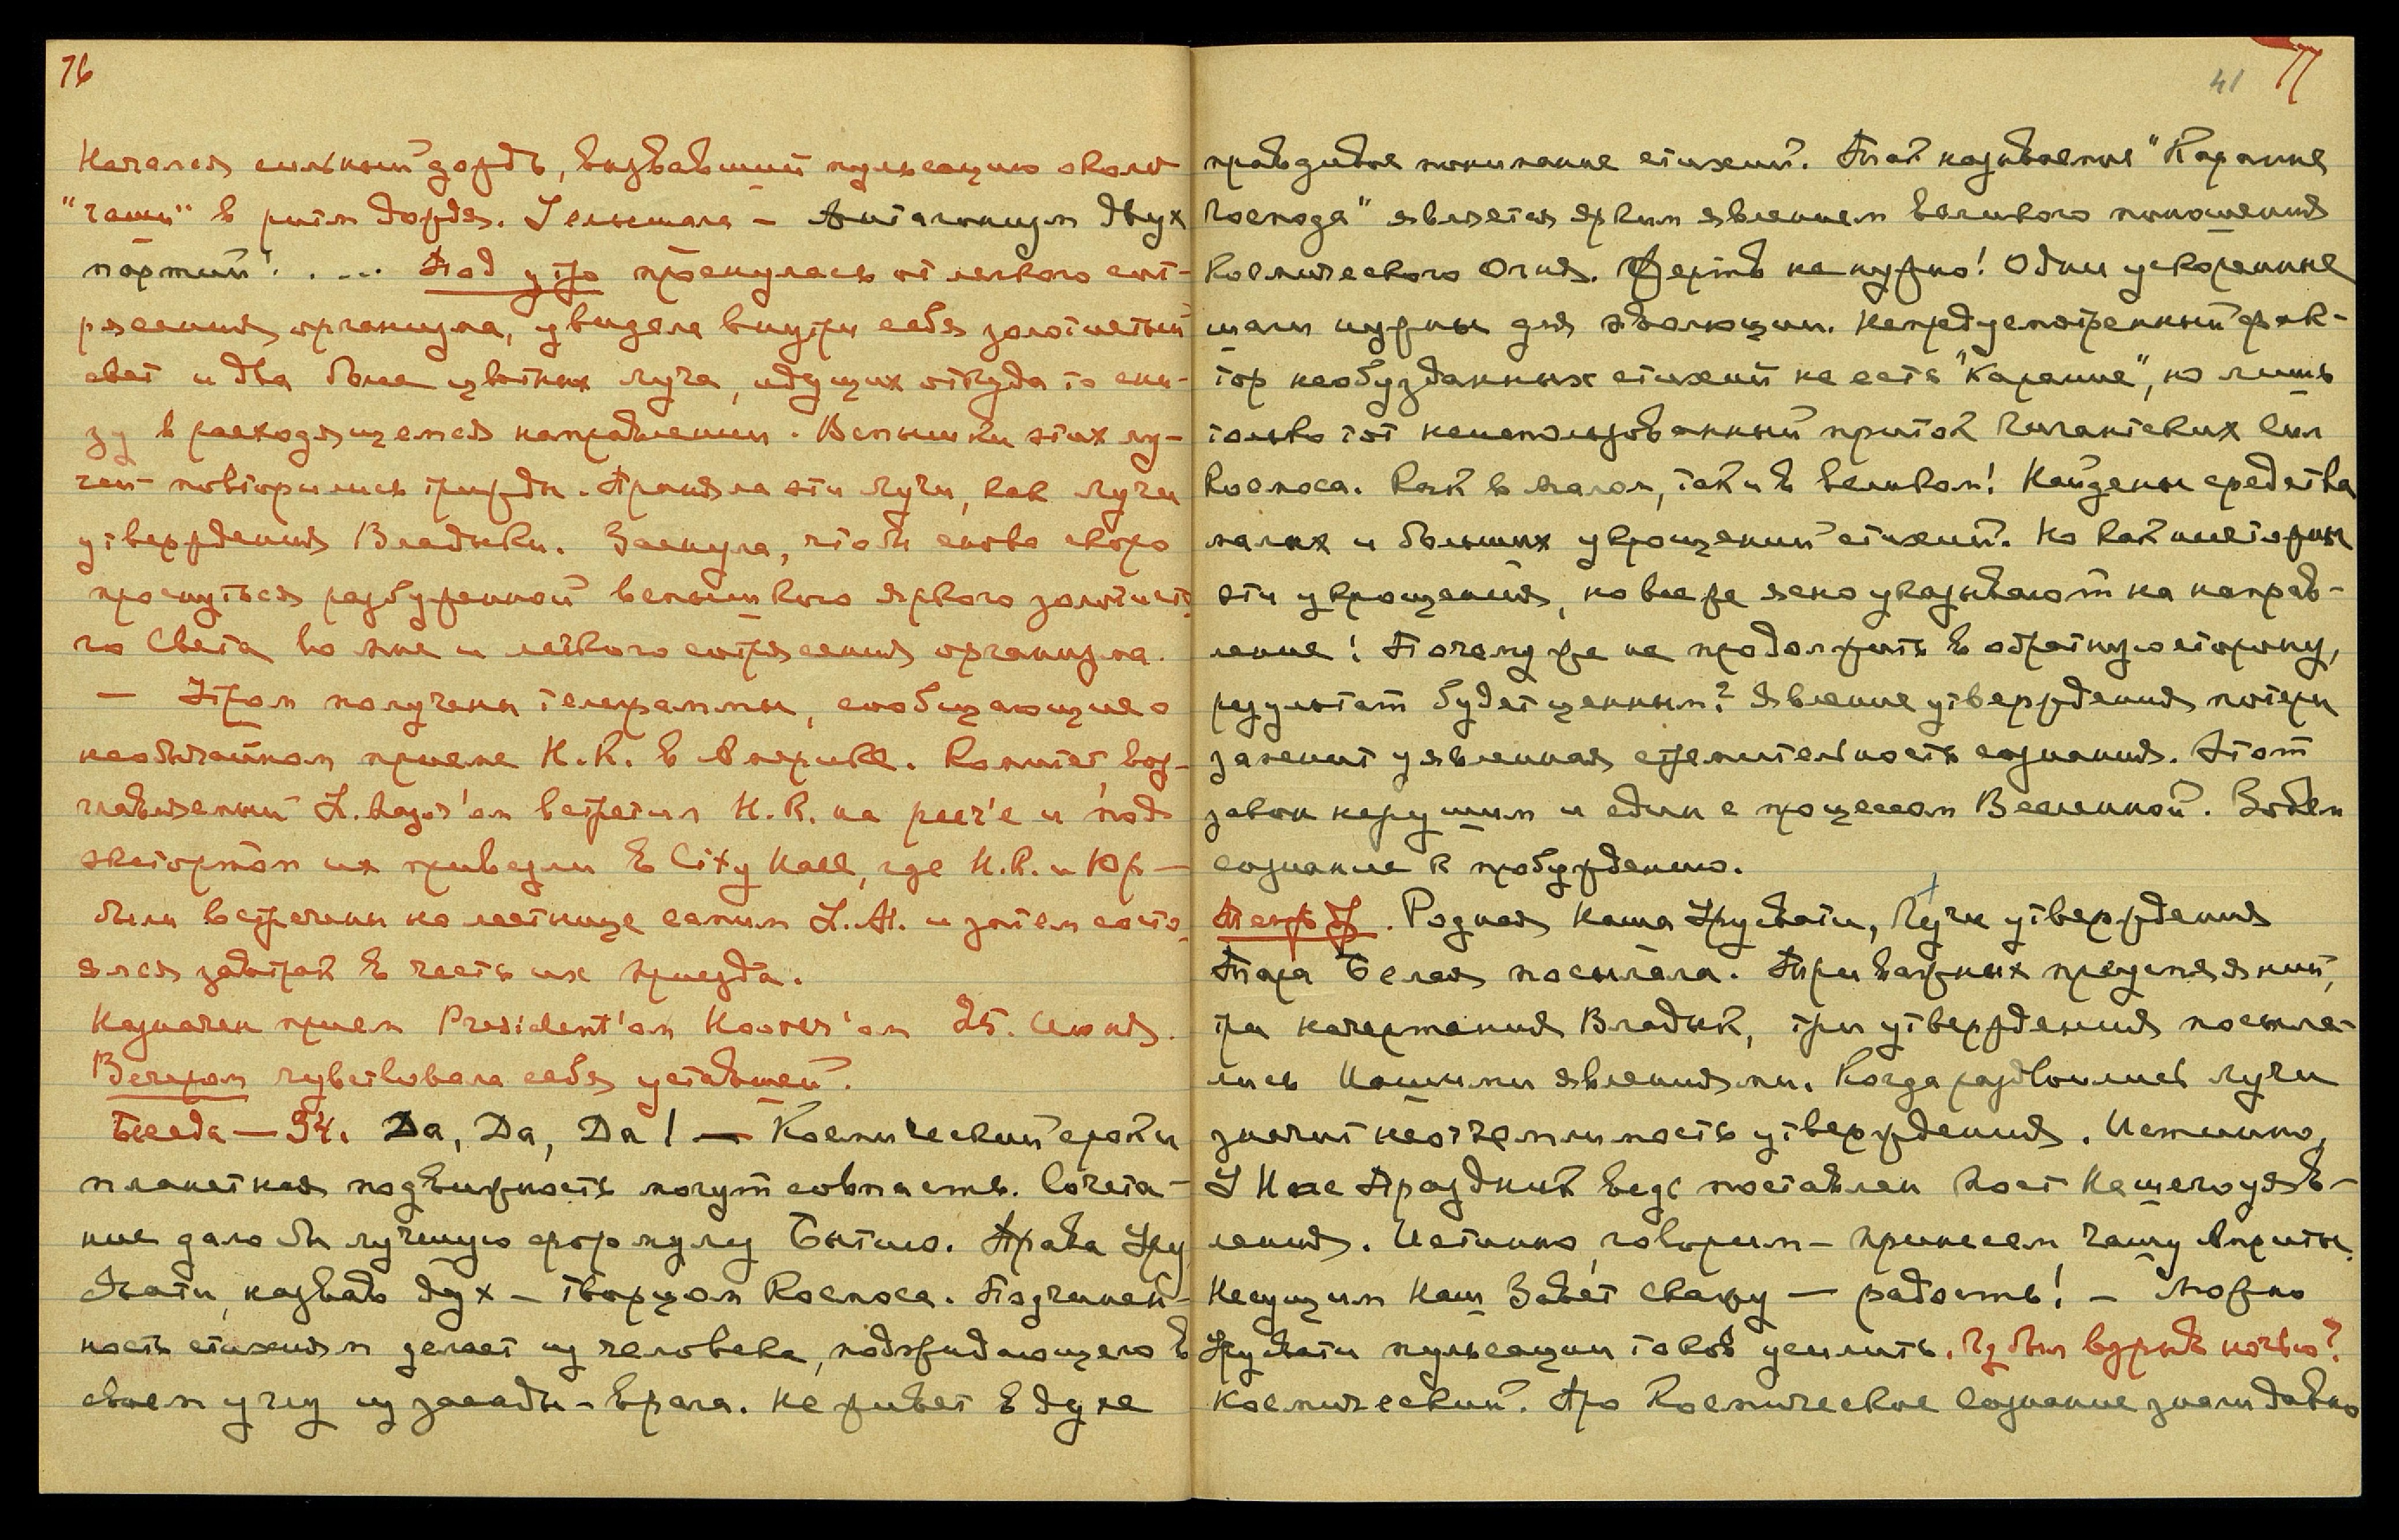 76
Начался сильный дождь, вызвавший пульсацию около
"чаши" в ритм дождя. Услышала – Антагонизм двух
партий! . ... Под утро проснулась от легкого сот-
рясения организма, увидела внутри себя золотистый
свет и два бело цветных луча, идущих откуда то сни-
зу в расходящемся направлении. Вспышки этих лу-
чей – повторились трижды. Приняла эти лучи, как лучи
утверждения Владыки. Заснула, чтобы снова скоро
проснуться разбуженной вспышкою яркого золотисто
го Света во мне и легкого сотрясения организма.
– Утром получены телеграммы, сообщающие о
необычайном приеме Н.К. в Америке. Комитет, воз-
главляемый L. Mayor'ом встретил Н.К. на pier'е и под
эскортом их привезли в City Hall, где Н.К. и Юр –
были встречены на лестнице самим L.M. и затем состо
ялся завтрак в честь их приезда.
Назначен прием President'ом Hoover'ом 25. Июня.
Вечером чувствовала себя уставшей.
Беседа – 94. Да, Да, Да! – Космический сроки
планетная подвижность могут совпасть. Сочета-
ние дало бы лучшую формулу Бытию. Права Уру
свати, назвав дух – творцом Космоса. Подчинен-
ность стихиям делает из человека, поджидающего в
своем углу из засады – врага. Не живет в духе
41 77
правдивое понимание стихий. Так называемые "Карание
Господа" является ярким явлением великого поношения
Космического Огня. Жертв не нужно! Одни ускоренные
шаги нужны для эволюции. Непредусмотренный фак-
тор необузданных стихий не есть "Карание", но лишь
только тот неиспользованный приток Гигантских Сил
Космоса. Как в малом, так и в великом! Найдены средства
малых и больших укрощений стихий. Но как ничтожны
эти укрощения, но все же ясно указывают на направ-
ление! Почему же не продолжить в обратную сторону,
результат будет ценным? Явление утверждения потери
заменит уявленная стремительность сознания. Этот
закон нерушим и един с процессом Вселенной. Зовем
сознание к пробуждению.
Родная Наша Урусвати, Лучи утверждения
Тара Белая посылала. Три важных предстояний,
три начертания Владык, три утверждения посыла-
лись Нашими явлениями. Когда раздвоились лучи
значит неотъемлимость утверждения. Истинно,
У Нас Праздник ведь поставлен мост Нашего уяв-
ления. Истинно, говорим – принесем Чашу Амриты.
Несущим Наш Завет скажу – радость! – Можно
Урусвати пульсации токов усилить. Чz был взрыв ночью?
Космический. Про Космическое Сознание знали давно